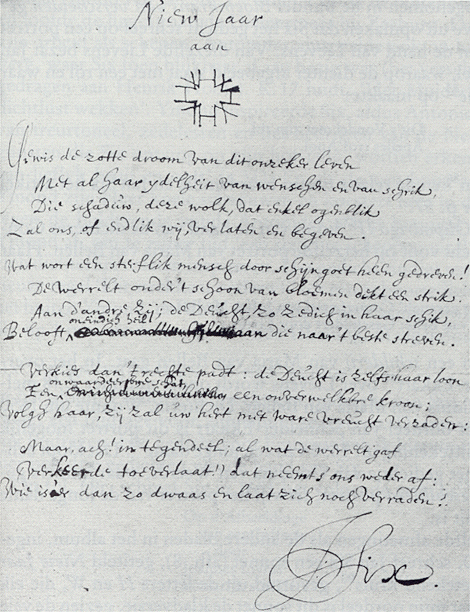 Niew Jaar
aan
Gewis de zotte droom van dit onzeker leven
Met al haar ydelheit van wenschen en van schrik,
Die schaduw, deze wolk, dat enkel ogenblik
Zal ons, of eindlik wij, verlaten en begeven.
Wat wort een sterflik mensch door schijngoet heen gedreven!
De werrelt onder 't schoon van bloemen dekt een strik.
Aan d'andre zij, de Deucht, zo zedich in haar schik,
Belooft aan die naar 't beste streven.
Verkies dan 't rechte padt: de Deucht is zelfs haar loon
Een onwaardeerbre schat, een onverwelkbre kroon;
Volgd haar, zij zal uw hert met ware vreucht verzaden:
Maar, ach! in tegendeel; al wat de werrelt gaf
(Verkeerde toeverlaat!) dat neemts' ons weder af:
Wie is 'er dan zo dwaas en laat zich noch verraden!
J Six.